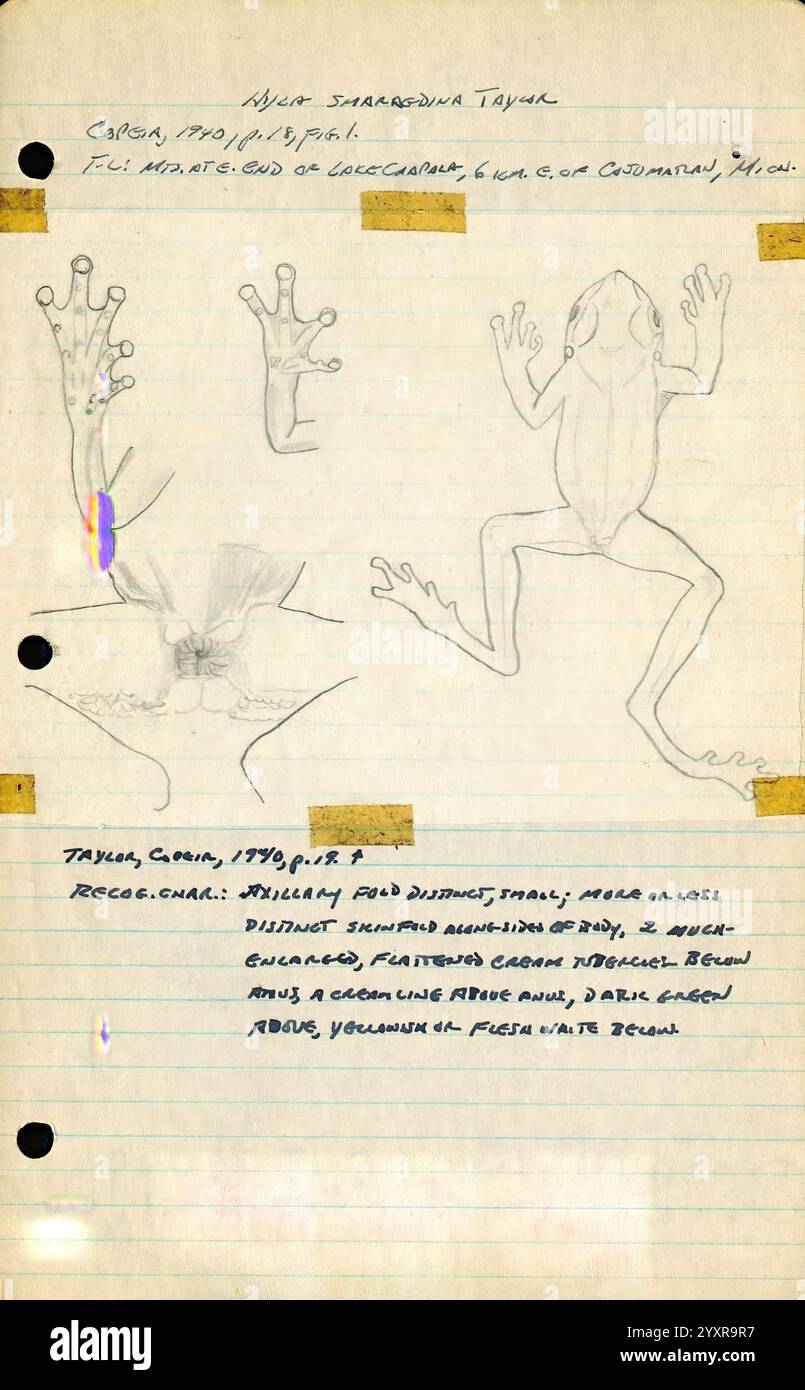 HYLA SMARAGDINA TAYLOR
COPEIA, 1940, p. 18, FIG. 1.
T-L: MTS. AT E. END OF LAKE CHAPALA, 6 KM. E. OF COJUMATLAN, MICH.
TAYLOR, COPEIA, 1940, p. 19. ↑
RECOG. CHAR.: AXILLARY FOLD DISTINCT, SMALL; MORE OR LESS
DISTINCT SKIN FOLD ALONG SIDES OF BODY, 2 MUCH-
ENLARGED, FLATTENED CREAM TUBERCLES BELOW
ANUS, A CREAM LINE ABOVE ANUS, DARK GREEN
ABOVE, YELLOWISH OR FLESH WHITE BELOW.
alamy
Image ID: 2YXR9R7
www.alamy.com